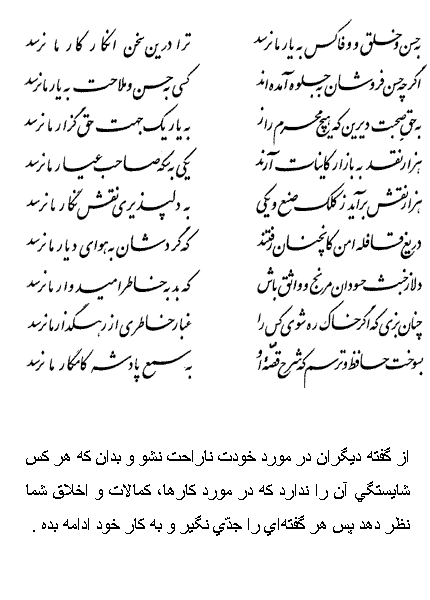 به حسن و خلق و وفا کس به یار ما نرسد ترا درین سخن انکار کار ما نرسد
اگر چه حسن فروشان به جلوه آمده اند کسی به حسن و ملاحت به یار ما نرسد
به حق صحبت دیرین که هیچ محرم راز به یار یک جهت حق گزار ما نرسد
هزار نقد به بازار کاینات آرند یکی به سکه صاحب عیار ما نرسد
هزار نقش برآید ز کلک صنع و یکی به دلپذیری نقش نگار ما نرسد
دریغ قافله امن کانچنان رفتند که گردشان به هوای دیار ما نرسد
دلا ز خبث حسودان مرنج و واثق باش که بد به خاطر امیدوار ما نرسد
چنان بزی که اگر خاک ره شوی کس را غبار خاطری از رهگذار ما نرسد
بسوخت حافظ و ترسم که شرح قصهٔ او به سمع پادشه کامگار ما نرسد
از گفته ديگران در مورد خودت ناراحت نشو و بدان که هر کس
شايستگي آن را ندارد که در مورد کارها، کمالات و اخلاق شما
نظر دهد پس هر گفته‌اي را جدّي نگير و به کار خود ادامه بده .